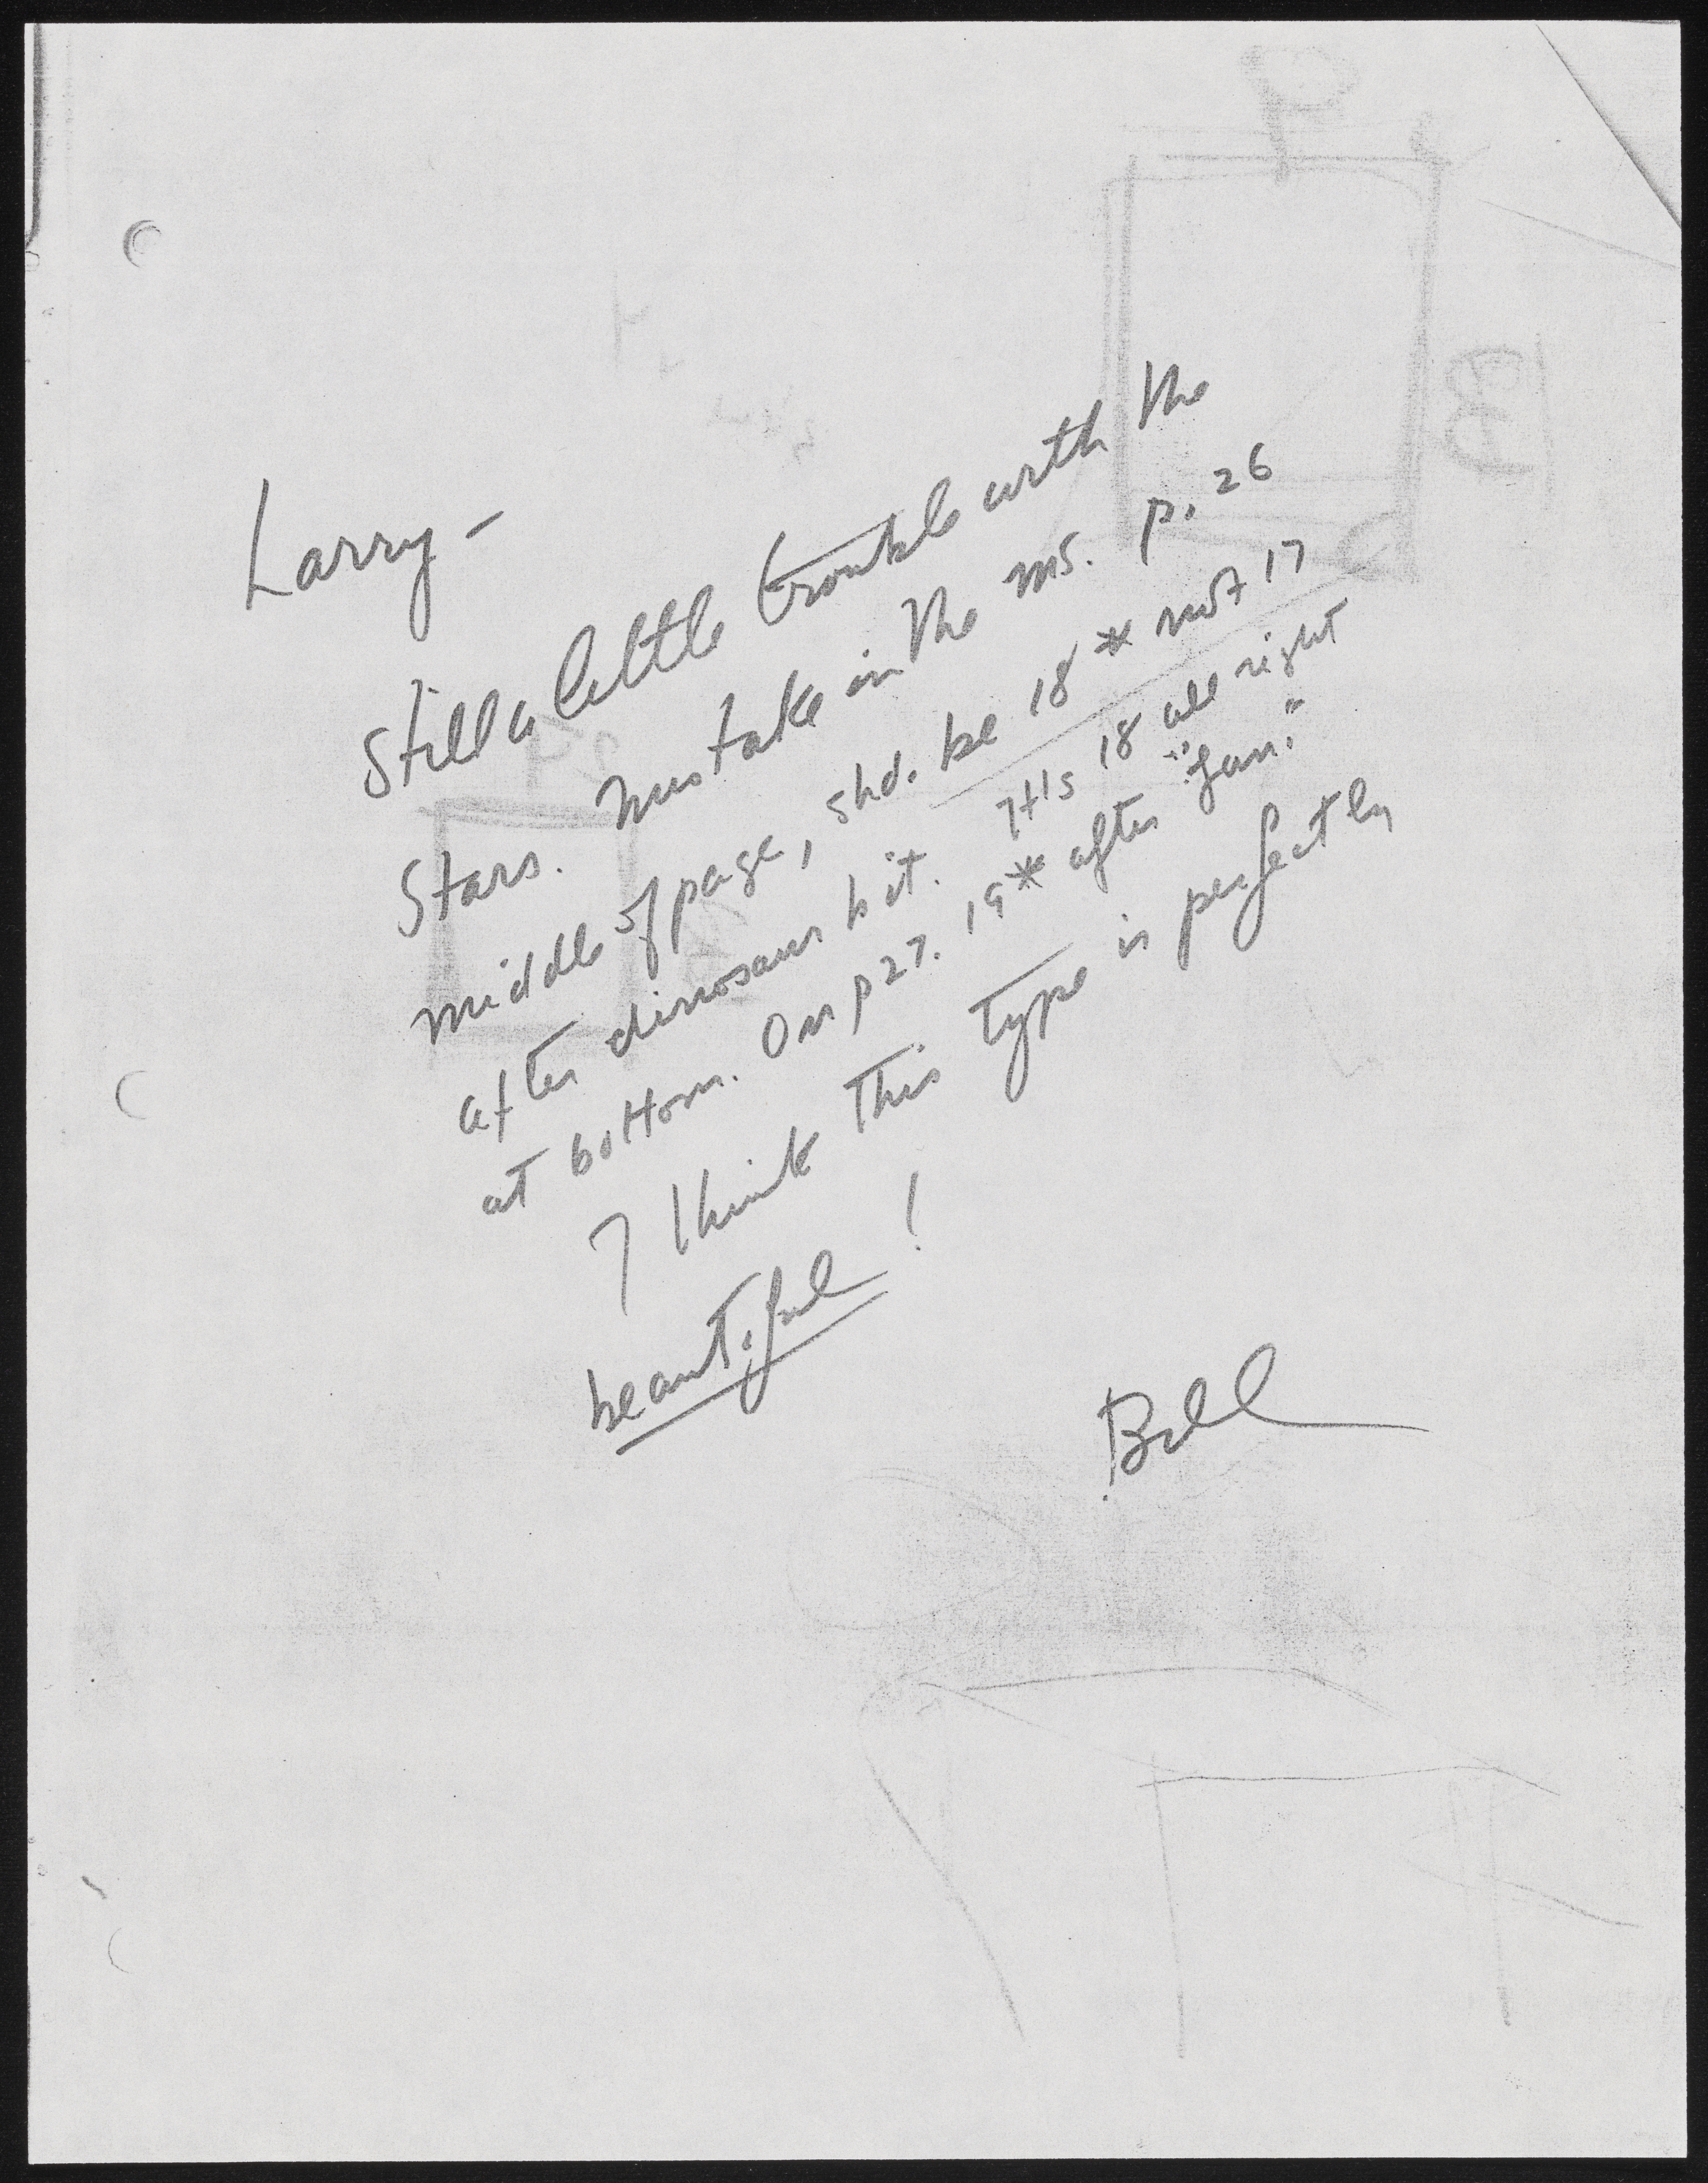 Larry –
Still a little trouble with the
Stars. Mistake in the ms. p. 26
middle of page, shd. be 18 * not 17
after dinosaur bit. It's 18 all right
at bottom. On p 27. 19* after "fan."
I think this type is perfectly
beautiful!
Bill